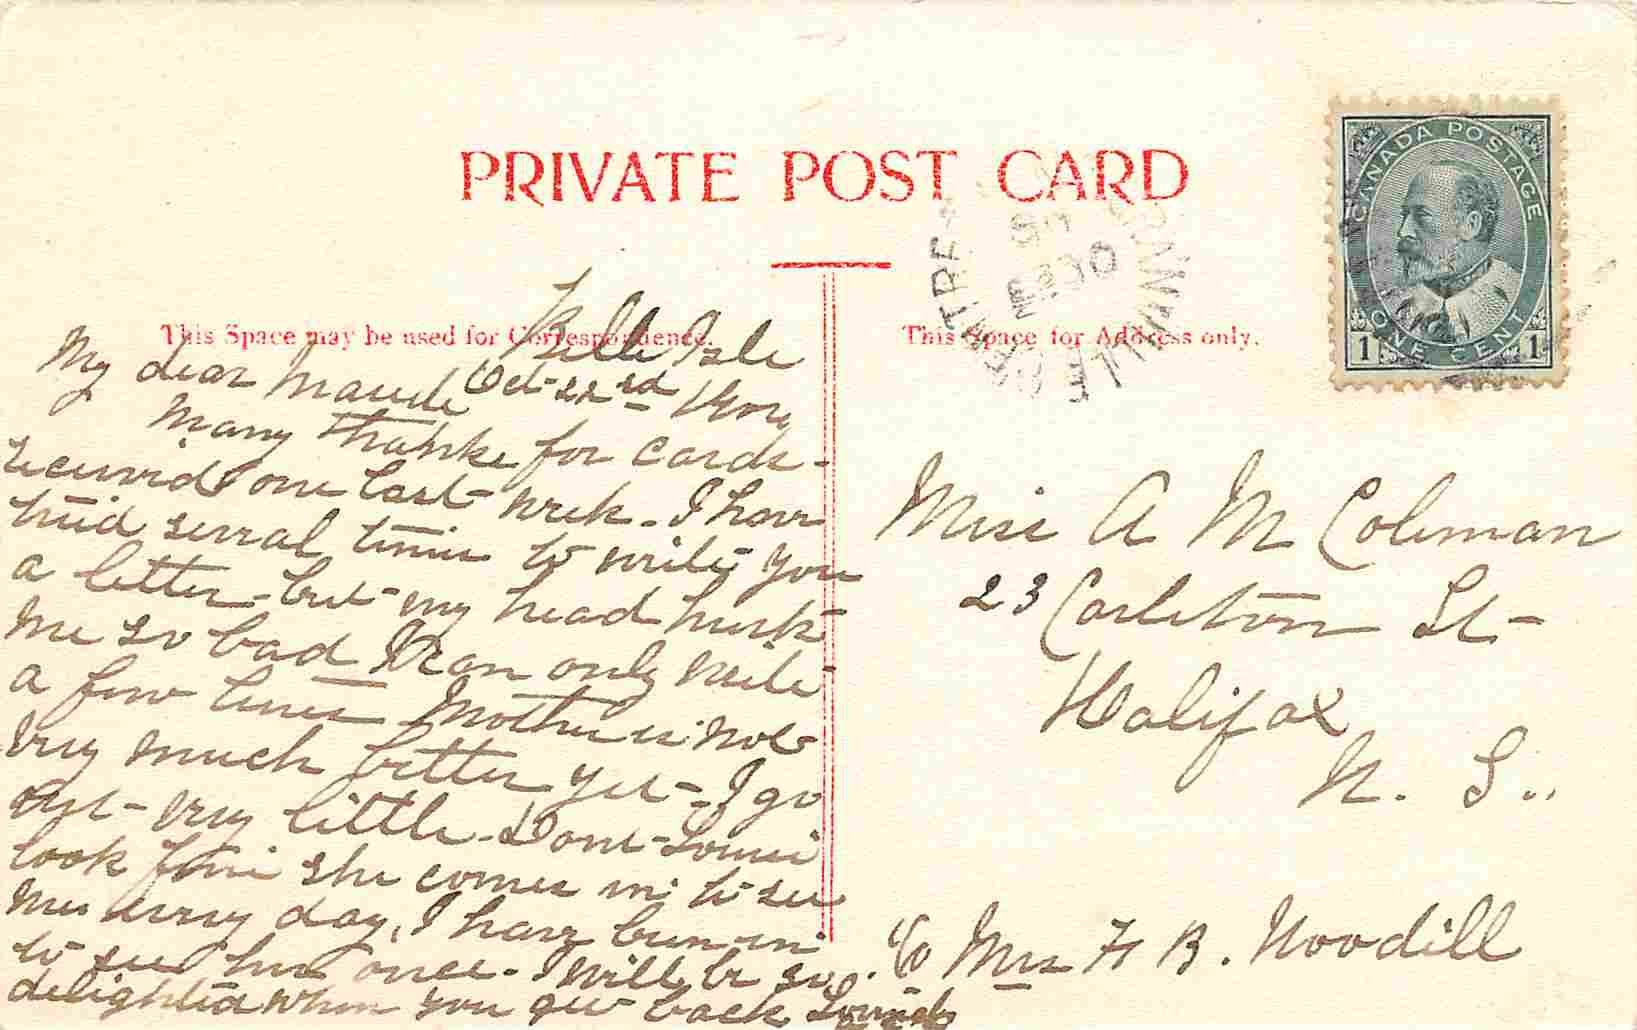 PRIVATE POST CARD
CANADA POSTAGE
ONE CENT
1 1
GRANVILLE CENTRE
OC 30
This Space may be used for Correspondence.
This Space for Address only.
Belle Isle
Oct 22nd
My dear Maude
Many thanks for cards -
received one last week. I have
tried serval times to write you
a letter - but my head hurts
me so bad I can only write
a few lines Mother is not
very much better yet - I go
out - very little - Dont Louise
look fine she comes in to see
me every day, I have been in
to see her once - I will be so
delighted when you get back
Miss A M Coleman
23 Carleton St -
Halifax
N. S.
c/o Mrs H B. Woodill